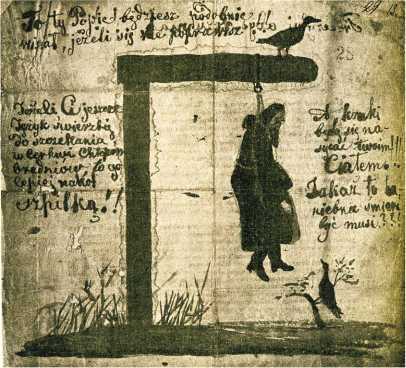 To ty Popie! będziesz podobnie!!!
wisiał, jeżeli się nie poprawisz
Jeżeli Ci jeszcze
język świerzbi
do szczekania
w cerkwi
to go
lepiej nakol
szpilką!!
A kruki
będą się na-
sycać twoim!!!
Ciałem
Jakaż to ha-
niebna śmierć
być musi???